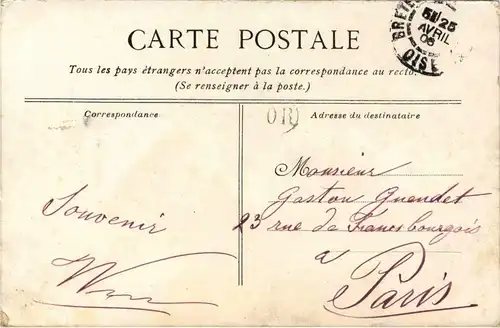 CARTE POSTALE
Tous les pays étrangers n'acceptent pas la correspondance au recto.
(Se renseigner à la poste.)
BRETE
5E 25
AVRIL
06
OISE
Correspondance
OR
Adresse du destinataire
Monsieur
Gaston Guendet
23 rue de Francsbourgeois
à
Paris
Souvenir